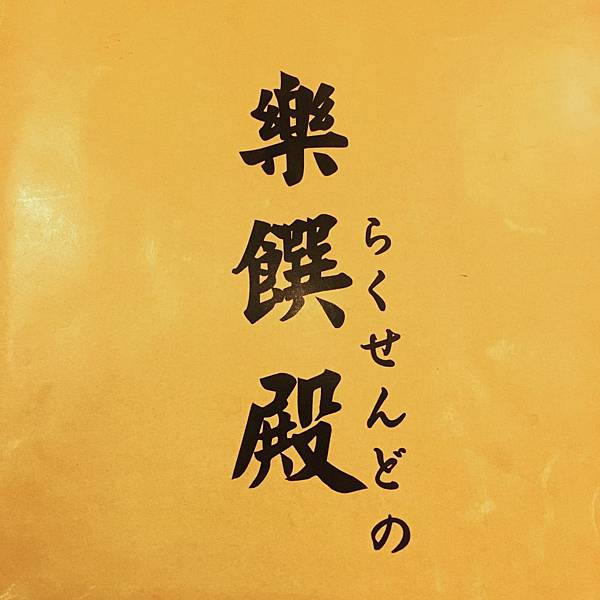 樂饌殿
らくせんどの